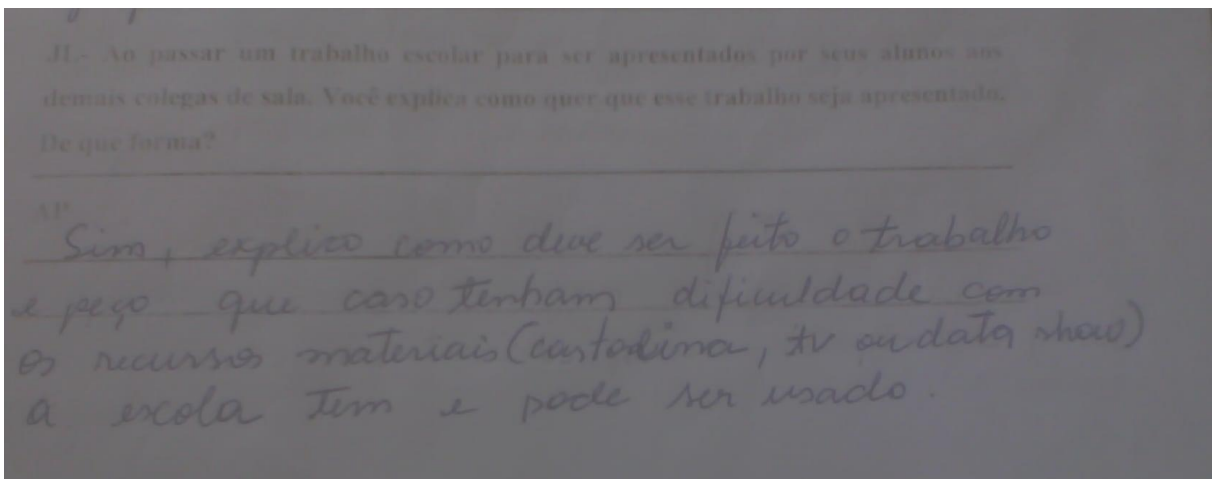 JL- Ao passar um trabalho escolar para ser apresentados por seus alunos aos
demais colegas de sala. Você explica como quer que esse trabalho seja apresentado.
De que forma?
Sim, explico como deve ser feito o trabalho
e peço que caso tenham dificuldade com
os recursos materiais (cartolina, tv ou data show)
a escola tem e pode ser usado.